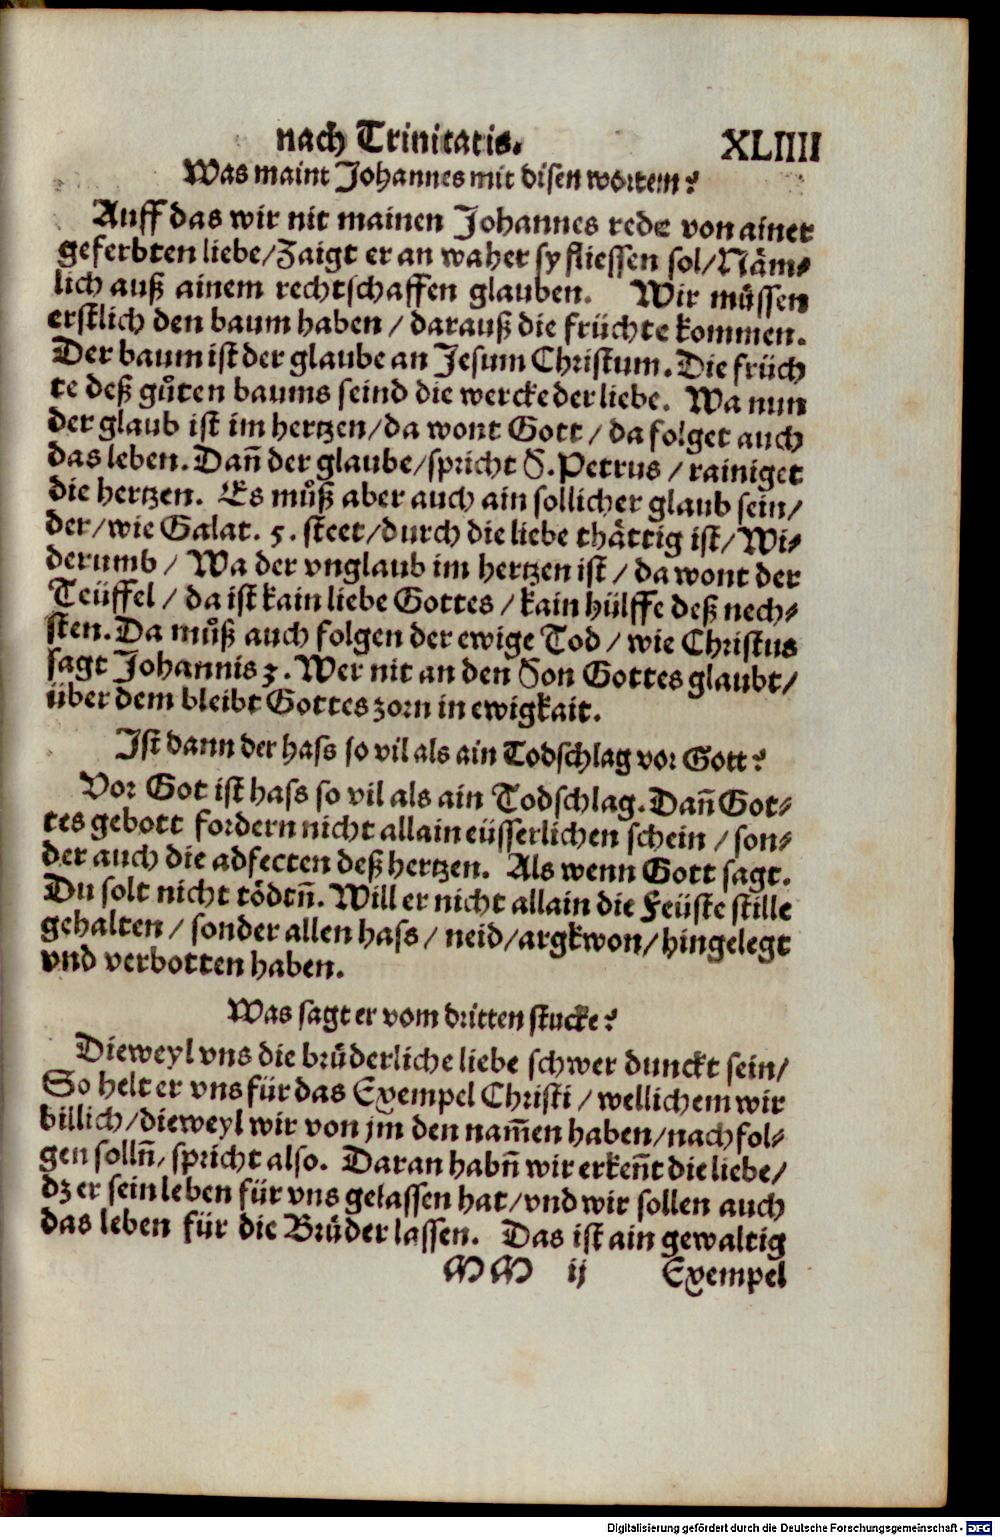 nach Trinitatis. XLIIII
Was maint Johannes mit disen worten?
Auff das wir nit mainen Johannes rede von ainer
geferbten liebe/Zaigt er an waher sy fliessen sol/Näm⸗
lich auß ainem rechtschaffen glauben. Wir müssen
erstlich den baum haben / darauß die früchte kommen.
Der baum ist der glaube an Jesum Christum. Die früch
te deß gůten baums seind die wercke der liebe. Wa nun
der glaub ist im hertzen/da wont Gott / da folget auch
das leben. Dañ der glaube/spricht S. Petrus / rainiget
die hertzen. Es můß aber auch ain sollicher glaub sein/
der/wie Galat. 5. steet/durch die liebe thättig ist/Wi⸗
derumb / Wa der vnglaub im hertzen ist / da wont der
Teüffel / da ist kain liebe Gottes / kain hülffe deß nech⸗
sten. Da můß auch folgen der ewige Tod / wie Christus
sagt Johannis 3. Wer nit an den Son Gottes glaubt/
über dem bleibt Gottes zorn in ewigkait.
Ist dann der hass so vil als ain Todschlag vor Gott?
Vor Got ist hass so vil als ain Todschlag. Dañ Got⸗
tes gebott fordern nicht allain eüsserlichen schein / son⸗
der auch die adfecten deß hertzen. Als wenn Gott sagt.
Du solt nicht tödtñ. Will er nicht allain die Feüste stille
gehalten / sonder allen hass / neid/argkwon/hingelegt
vnd verbotten haben.
Was sagt er vom dritten stucke?
Dieweyl vns die brüderliche liebe schwer dunckt sein/
So helt er vns für das Exempel Christi / wellichem wir
billich/dieweyl wir von jm den nam̃en haben/nachfol⸗
gen sollñ/ spricht also. Daran habñ wir erkeñt die liebe/
dz er sein leben für vns gelassen hat/vnd wir sollen auch
das leben für die Brüder lassen. Das ist ain gewaltig
MM ij Exempel
Digitalisierung gefördert durch die Deutsche Forschungsgemeinschaft - DFG